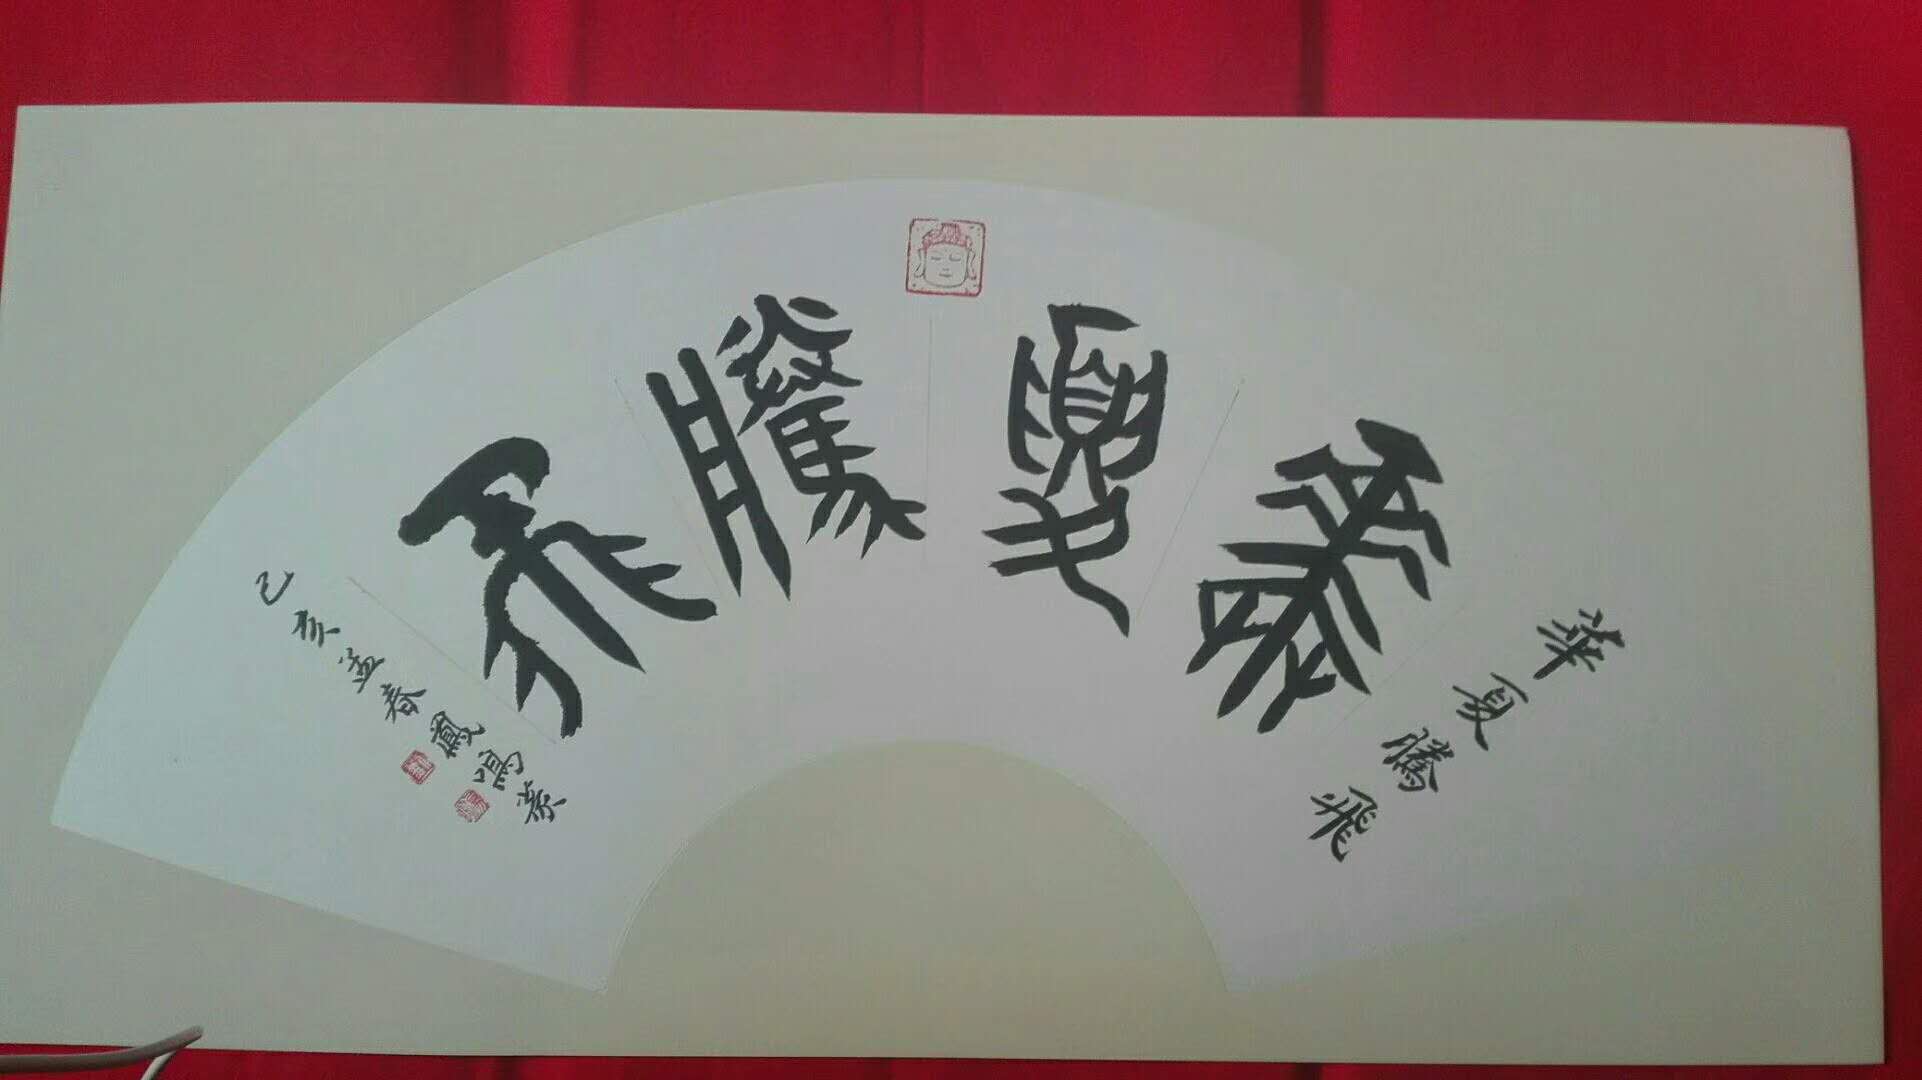 華夏騰飛
華夏騰飛
己亥孟春鳳鳴篆